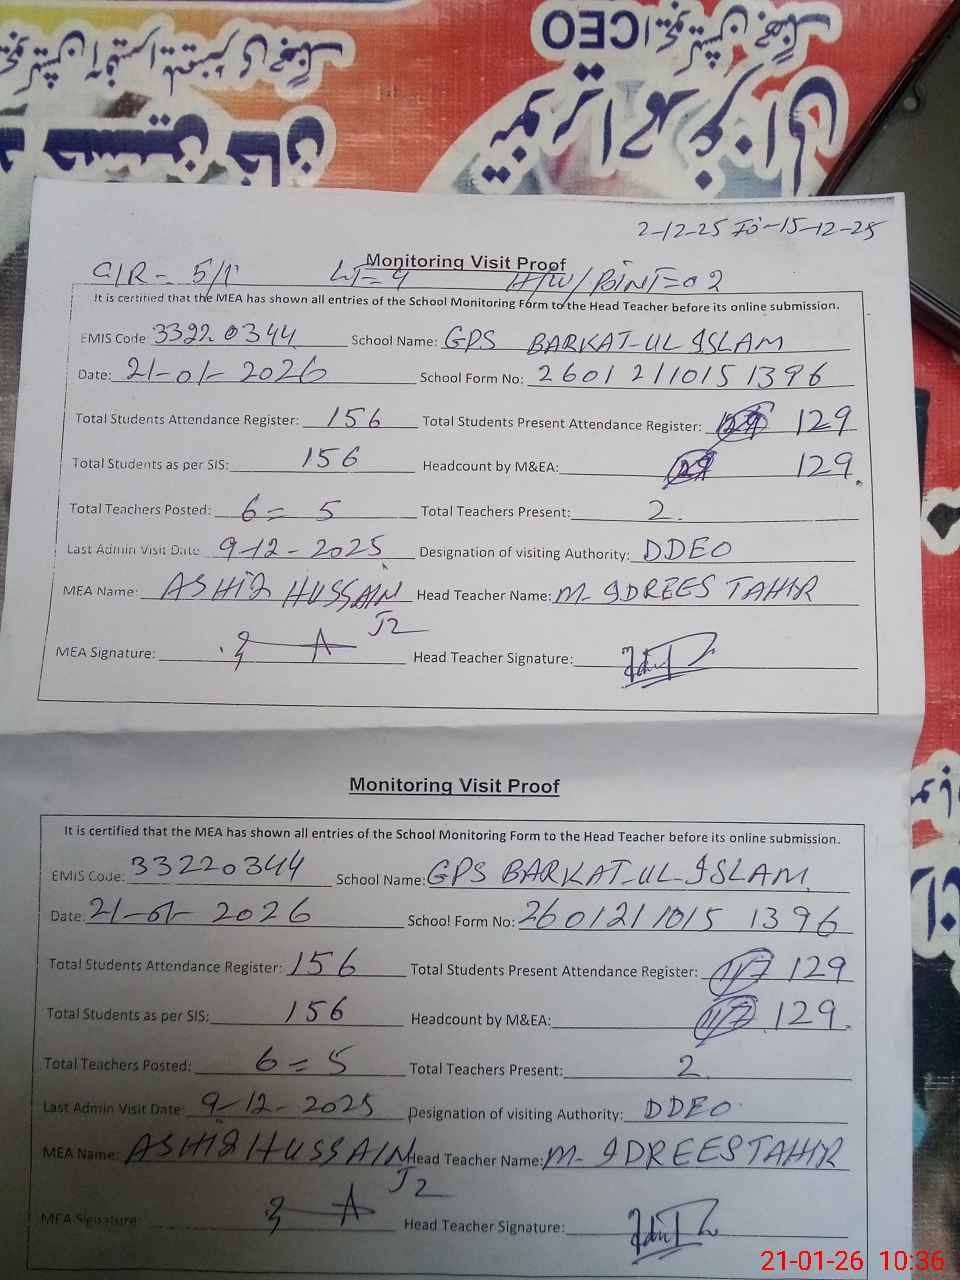 CEO
2-12-25 To-15-12-25
Monitoring Visit Proof
C/R- 5/11 LT=9 H/W/POINT=02
It is certified that the MEA has shown all entries of the School Monitoring Form to the Head Teacher before its online submission.
EMIS Code 33220344 School Name: GPS BARKAT-UL ISLAM
Date: 21-01-2026 School Form No: 26012110151396
Total Students Attendance Register: 156 Total Students Present Attendance Register: 129
Total Students as per SIS: 156 Headcount by M&EA: 129
Total Teachers Posted: 6= 5 Total Teachers Present: 2
Last Admin Visit Date 9-12-2025 Designation of visiting Authority: DDEO
MEA Name: ASHIQ HUSSAIN Head Teacher Name: M. IDREES TAHIR
J2
MEA Signature: Head Teacher Signature:
Monitoring Visit Proof
It is certified that the MEA has shown all entries of the School Monitoring Form to the Head Teacher before its online submission.
EMIS Code: 33220344 School Name: GPS BARKAT-UL-ISLAM
Date: 21-01-2026 School Form No: 26012110151396
Total Students Attendance Register: 156 Total Students Present Attendance Register: 129
Total Students as per SIS: 156 Headcount by M&EA: 129
Total Teachers Posted: 6=5 Total Teachers Present: 2
Last Admin Visit Date: 9-12-2025 Designation of visiting Authority: DDEO
MEA Name: ASHIQ HUSSAIN Head Teacher Name: M. IDREES TAHIR
J2
MEA Signature: Head Teacher Signature:
21-01-26 10:36